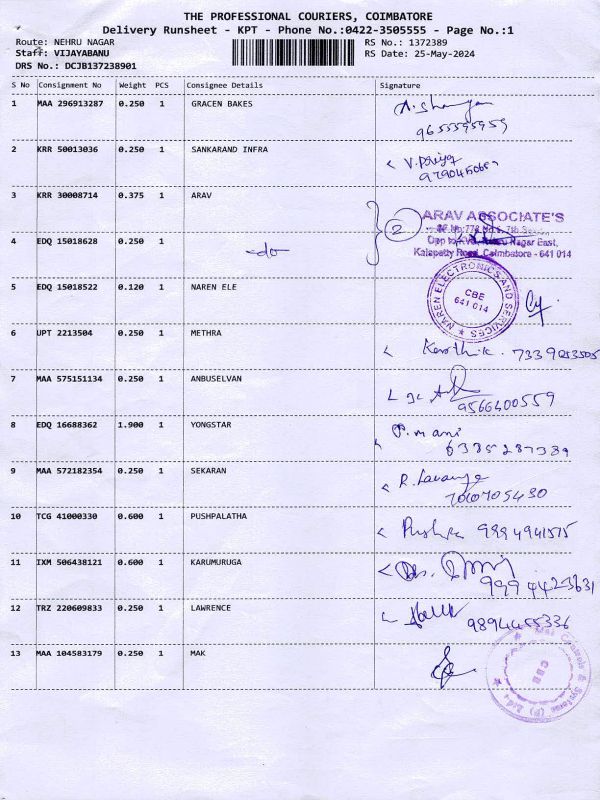 THE PROFESSIONAL COURIERS, COIMBATORE
Delivery Runsheet - KPT - Phone No.:0422-3505555 - Page No.:1
Route: NEHRU NAGAR RS No.: 1372389
Staff: VIJAYABANU RS Date: 25-May-2024
DRS No.: DCJB137238901
S No Consignment No Weight PCS Consignee Details Signature
1 MAA 296913287 0.250 1 GRACEN BAKES
9655595959
2 KRR 50013036 0.250 1 SANKARAND INFRA V. Priya
3 KRR 30008714 0.375 1 ARAV
2
ARAV ASSOCIATE'S
Nagar East,
Kalapatty Road, Coimbatore - 641 014
4 EDQ 15018628 0.250 1 -do-
5 EDQ 15018522 0.120 1 NAREN ELE
NAREN ELECTRONICS AND SERVICES
CBE
641 014
6 UPT 2213504 0.250 1 METHRA Karthik.
7 MAA 575151134 0.250 1 ANBUSELVAN
9566400559
8 EDQ 16688362 1.900 1 YONGSTAR P. mani
6385287389
9 MAA 572182354 0.250 1 SEKARAN R. Lavanya
10 TCG 41000330 0.600 1 PUSHPALATHA Pushpa 9894941575
11 IXM 506438121 0.600 1 KARUMURUGA
9994423631
12 TRZ 220609833 0.250 1 LAWRENCE
9894455336
13 MAA 104583179 0.250 1 MAK
Mak Controls & Systems (P) Ltd.
CBE